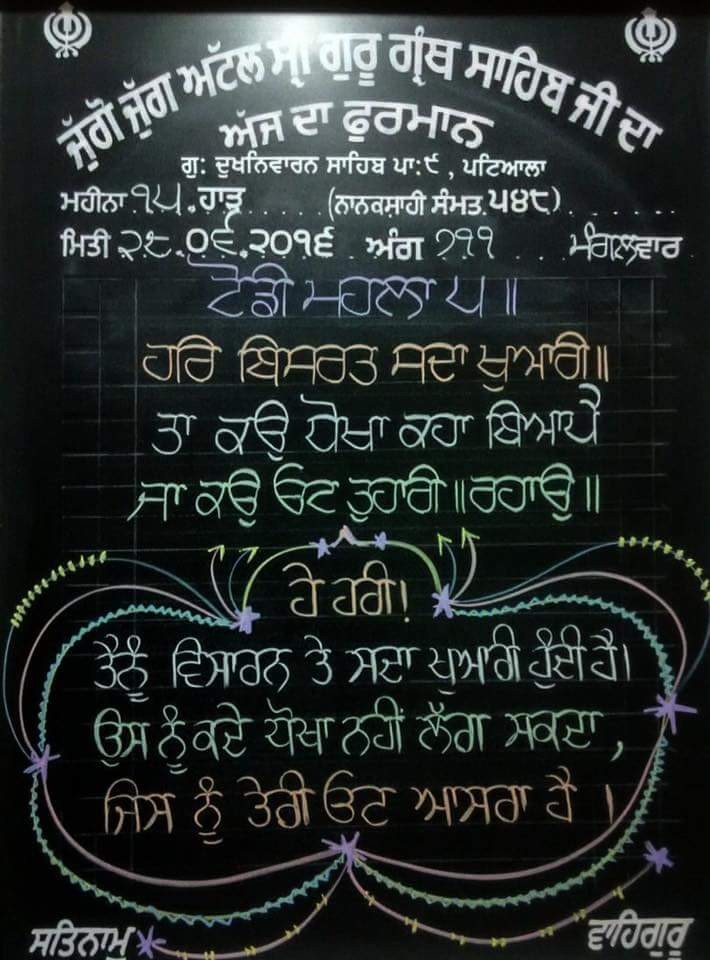 ਜੁੱਗੋ ਜੁੱਗ ਅਟੱਲ ਸ੍ਰੀ ਗੁਰੂ ਗ੍ਰੰਥ ਸਾਹਿਬ ਜੀ ਦਾ
ਅੱਜ ਦਾ ਫੁਰਮਾਨ
ਗੁ: ਦੁਖਨਿਵਾਰਨ ਸਾਹਿਬ ਪਾ:੯, ਪਟਿਆਲਾ
ਮਹੀਨਾ ੧੫.ਹਾੜ੍ਹ (ਨਾਨਕਸ਼ਾਹੀ ਸੰਮਤ ੫੪੮)
ਮਿਤੀ ੨੮.੦੬.੨੦੧੬ ਅੰਗ ੭੧੧ ਮੰਗਲਵਾਰ
ਟੋਡੀ ਮਹਲਾ ੫॥
ਹਰਿ ਬਿਸਰਤ ਸਦਾ ਖੁਆਰੀ॥
ਤਾ ਕਉ ਧੋਖਾ ਕਹਾ ਬਿਆਪੈ
ਜਾ ਕਉ ਓਟ ਤੁਹਾਰੀ॥ਰਹਾਉ॥
ਹੇ ਹਰੀ!
ਤੈਨੂੰ ਵਿਸਾਰਨ ਤੇ ਸਦਾ ਖੁਆਰੀ ਹੁੰਦੀ ਹੈ।
ਉਸ ਨੂੰ ਕਦੇ ਧੋਖਾ ਨਹੀਂ ਲੱਗ ਸਕਦਾ,
ਜਿਸ ਨੂੰ ਤੇਰੀ ਓਟ ਆਸਰਾ ਹੈ।
ਸਤਿਨਾਮੁ ਵਾਹਿਗੁਰੂ